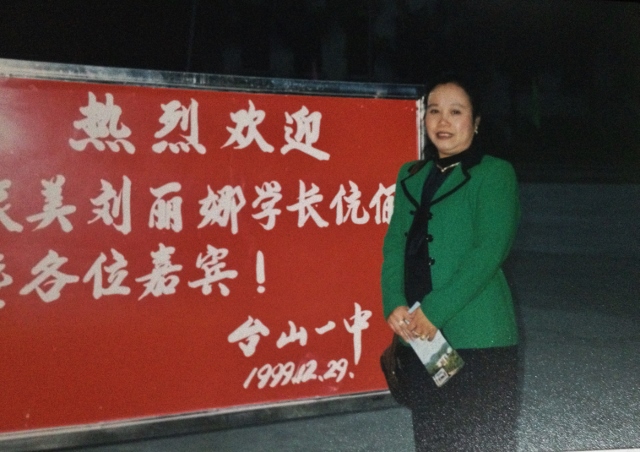 热烈欢迎
美刘丽娜学长伉
各位嘉宾！
台山一中
1999.12.29.